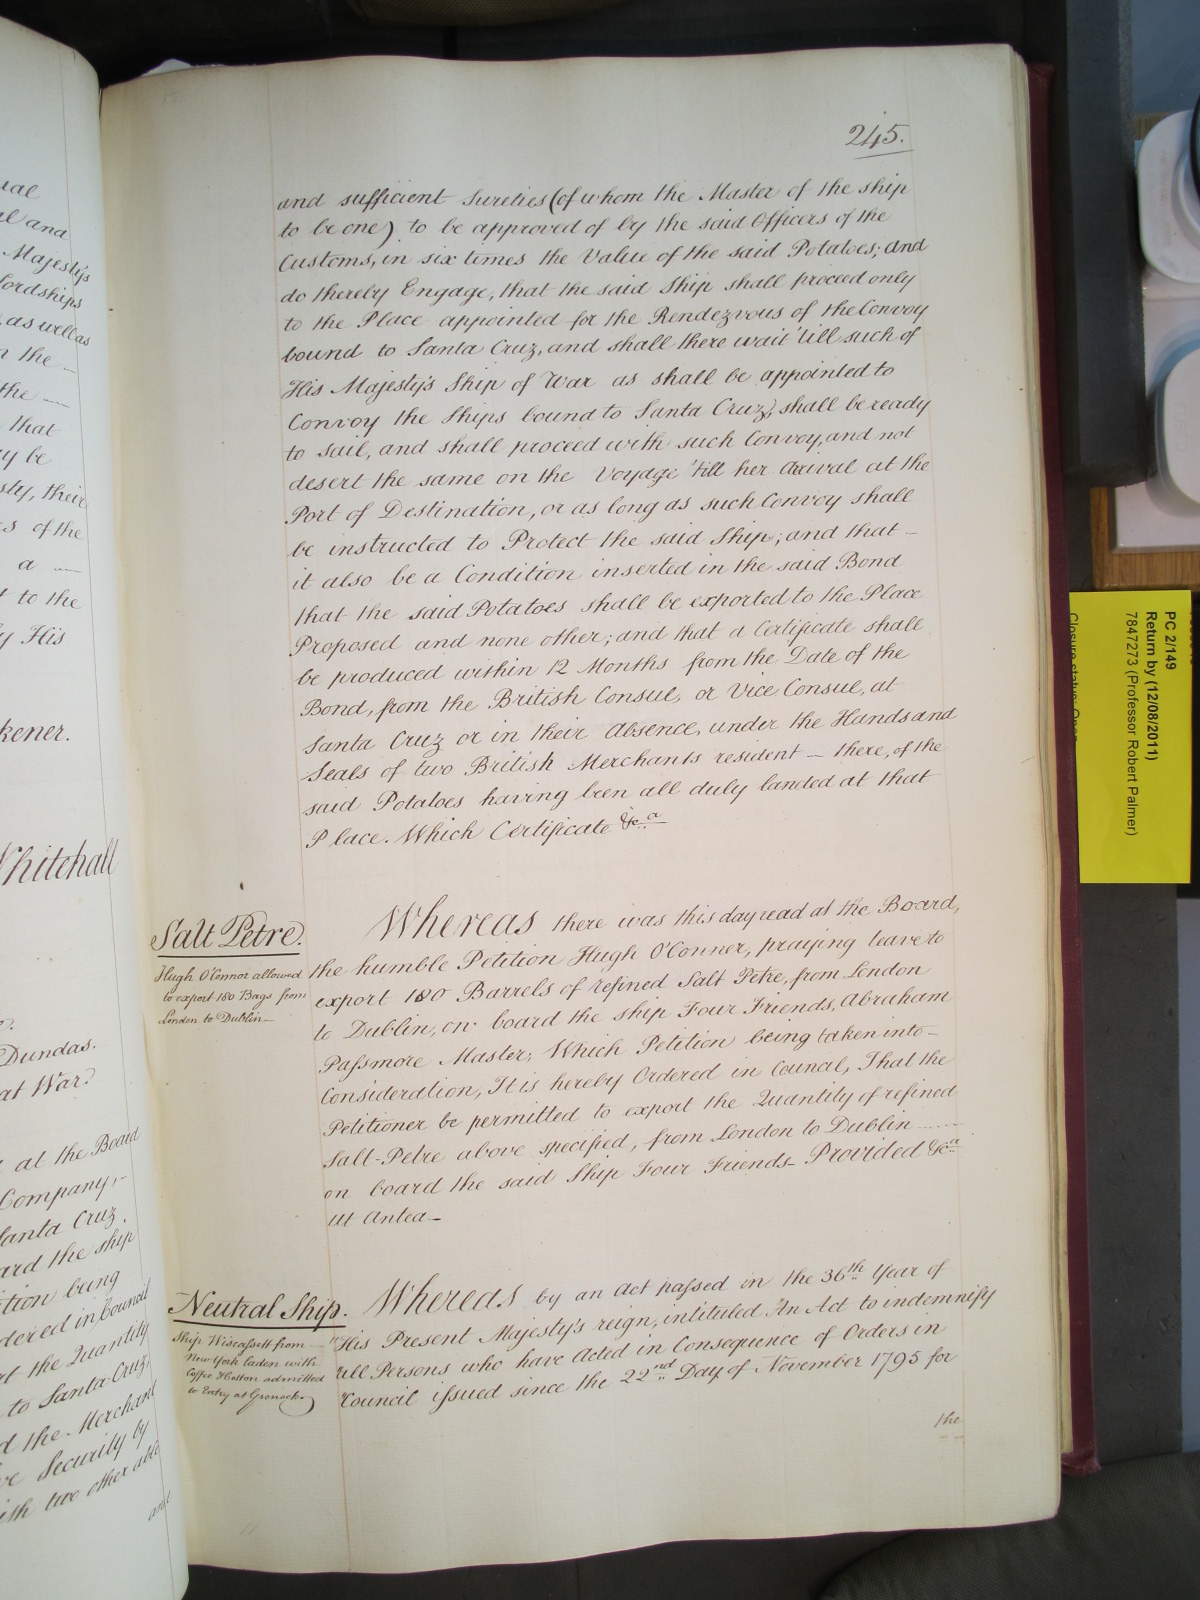 ual
al and
Majesty's
Lordships
as well as
the
the
that
y be
sty, their
s of the
a
t to the
y His
kener.
Whitehall
Dundas.
at War.
at the Board
Company,
Santa Cruz.
ard the ship
tion being
dered in Council
t the Quantity
to Santa Cruz,
d the Merchant
ve Security by
ith two other able
and
245.
and sufficient Sureties (of whom the Master of the ship
to be one) to be approved of by the said Officers of the
Customs, in six times the Value of the said Potatoes; and
do thereby Engage, that the said Ship shall proceed only
to the Place appointed for the Rendezvous of the Convoy
bound to Santa Cruz, and shall there wait 'till such of
His Majesty's Ship of War as shall be appointed to
Convoy the Ships bound to Santa Cruz, shall be ready
to sail, and shall proceed with such Convoy, and not
desert the same on the Voyage 'till her Arrival at the
Port of Destination, or as long as such Convoy shall
be instructed to Protect the said Ship; and that –
it also be a Condition inserted in the said Bond
that the said Potatoes shall be exported to the Place
Proposed and none other; and that a Certificate shall
be produced within 12 Months from the Date of the
Bond, from the British Consul, or Vice Consul, at
Santa Cruz or in their Absence, under the Hands and
Seals of two British Merchants resident – there, of the
said Potatoes having been all duly landed at that
Place. Which Certificate &c.a
Salt Petre.
Hugh O'Connor allowed
to export 180 Bags from
London to Dublin –
Whereas there was this day read at the Board,
the humble Petition Hugh O'Conner, praying leave to
export 180 Barrels of refined Salt Petre, from London
to Dublin, on board the ship Four Friends, Abraham
Passmore Master; Which Petition being taken into –
Consideration, It is hereby Ordered in Council, That the
Petitioner be permitted to export the Quantity of refined
Salt-Petre above specified, from London to Dublin
on board the said Ship Four Friends – Provided &c.a
ut Antea. –
Neutral Ship.
Ship Wiscassett from
New York laden with
Coffee & Cotton admitted
to Entry at Greenock
Whereas by an Act passed in the 36th. Year of
"His Present Majesty's reign, intituled "An Act to indemnify
"all Persons who have Acted in Consequence of Orders in
"Council issued since the 22nd. Day of November 1795 for
the
PC 2/149
Return by (12/08/2011)
7847273 (Professor Robert Palmer)